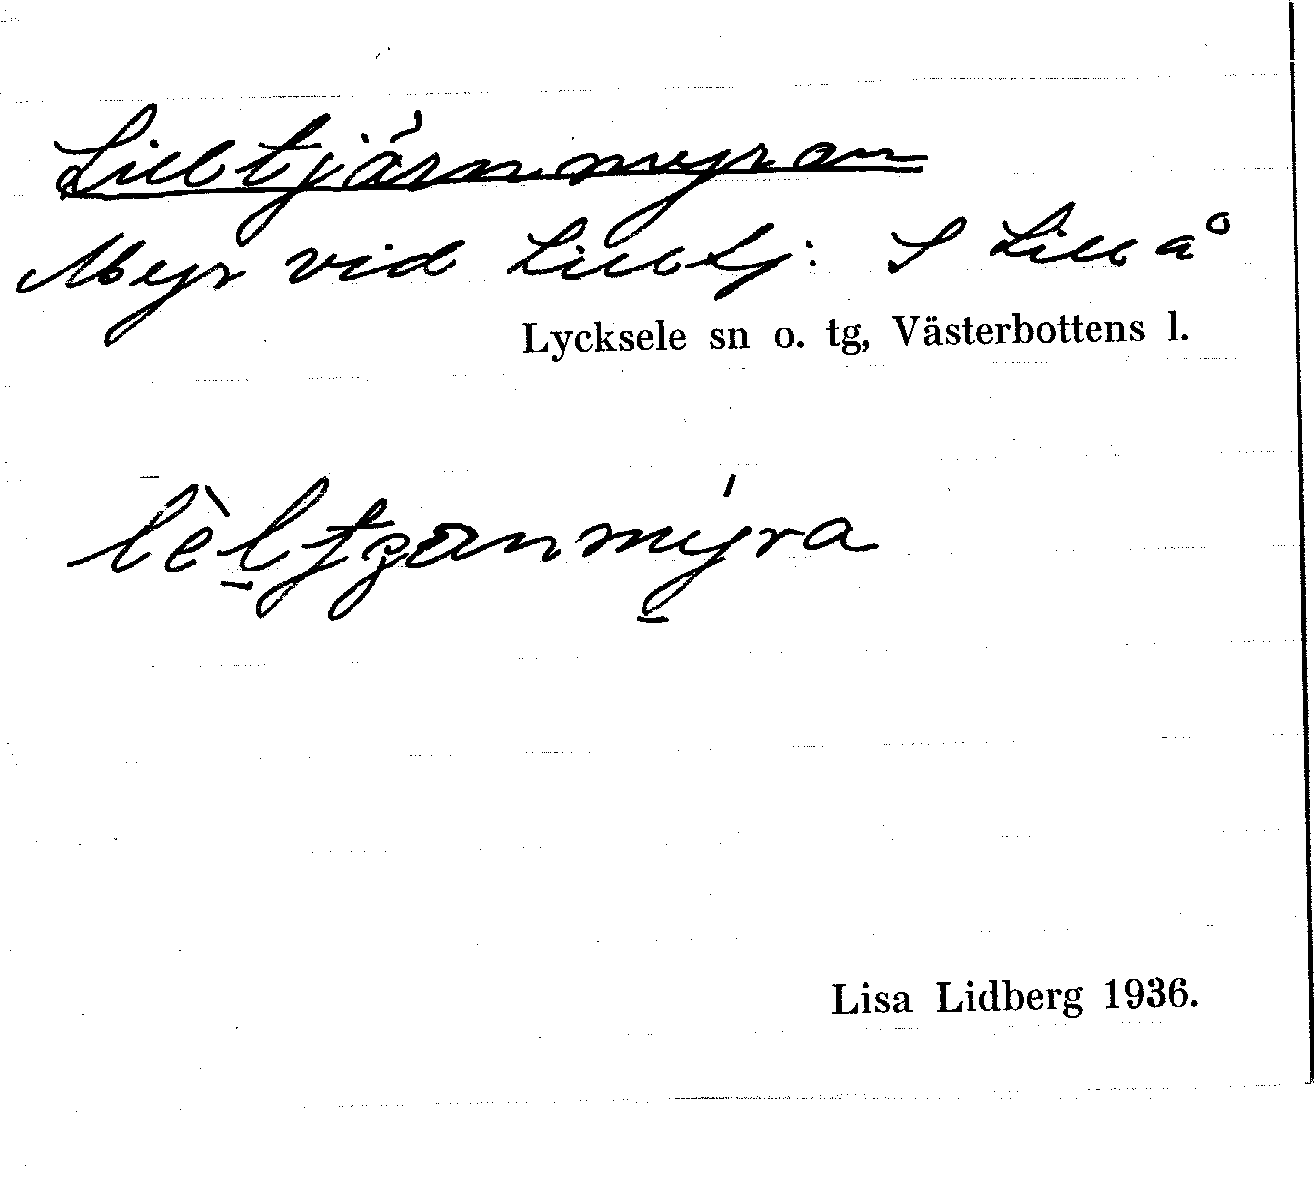 Lilltjärnmyran
Myr vid Lilltj: S Lillå
Lycksele sn o. tg, Västerbottens l.
lèltʒanmýra
Lisa Lidberg 1936.